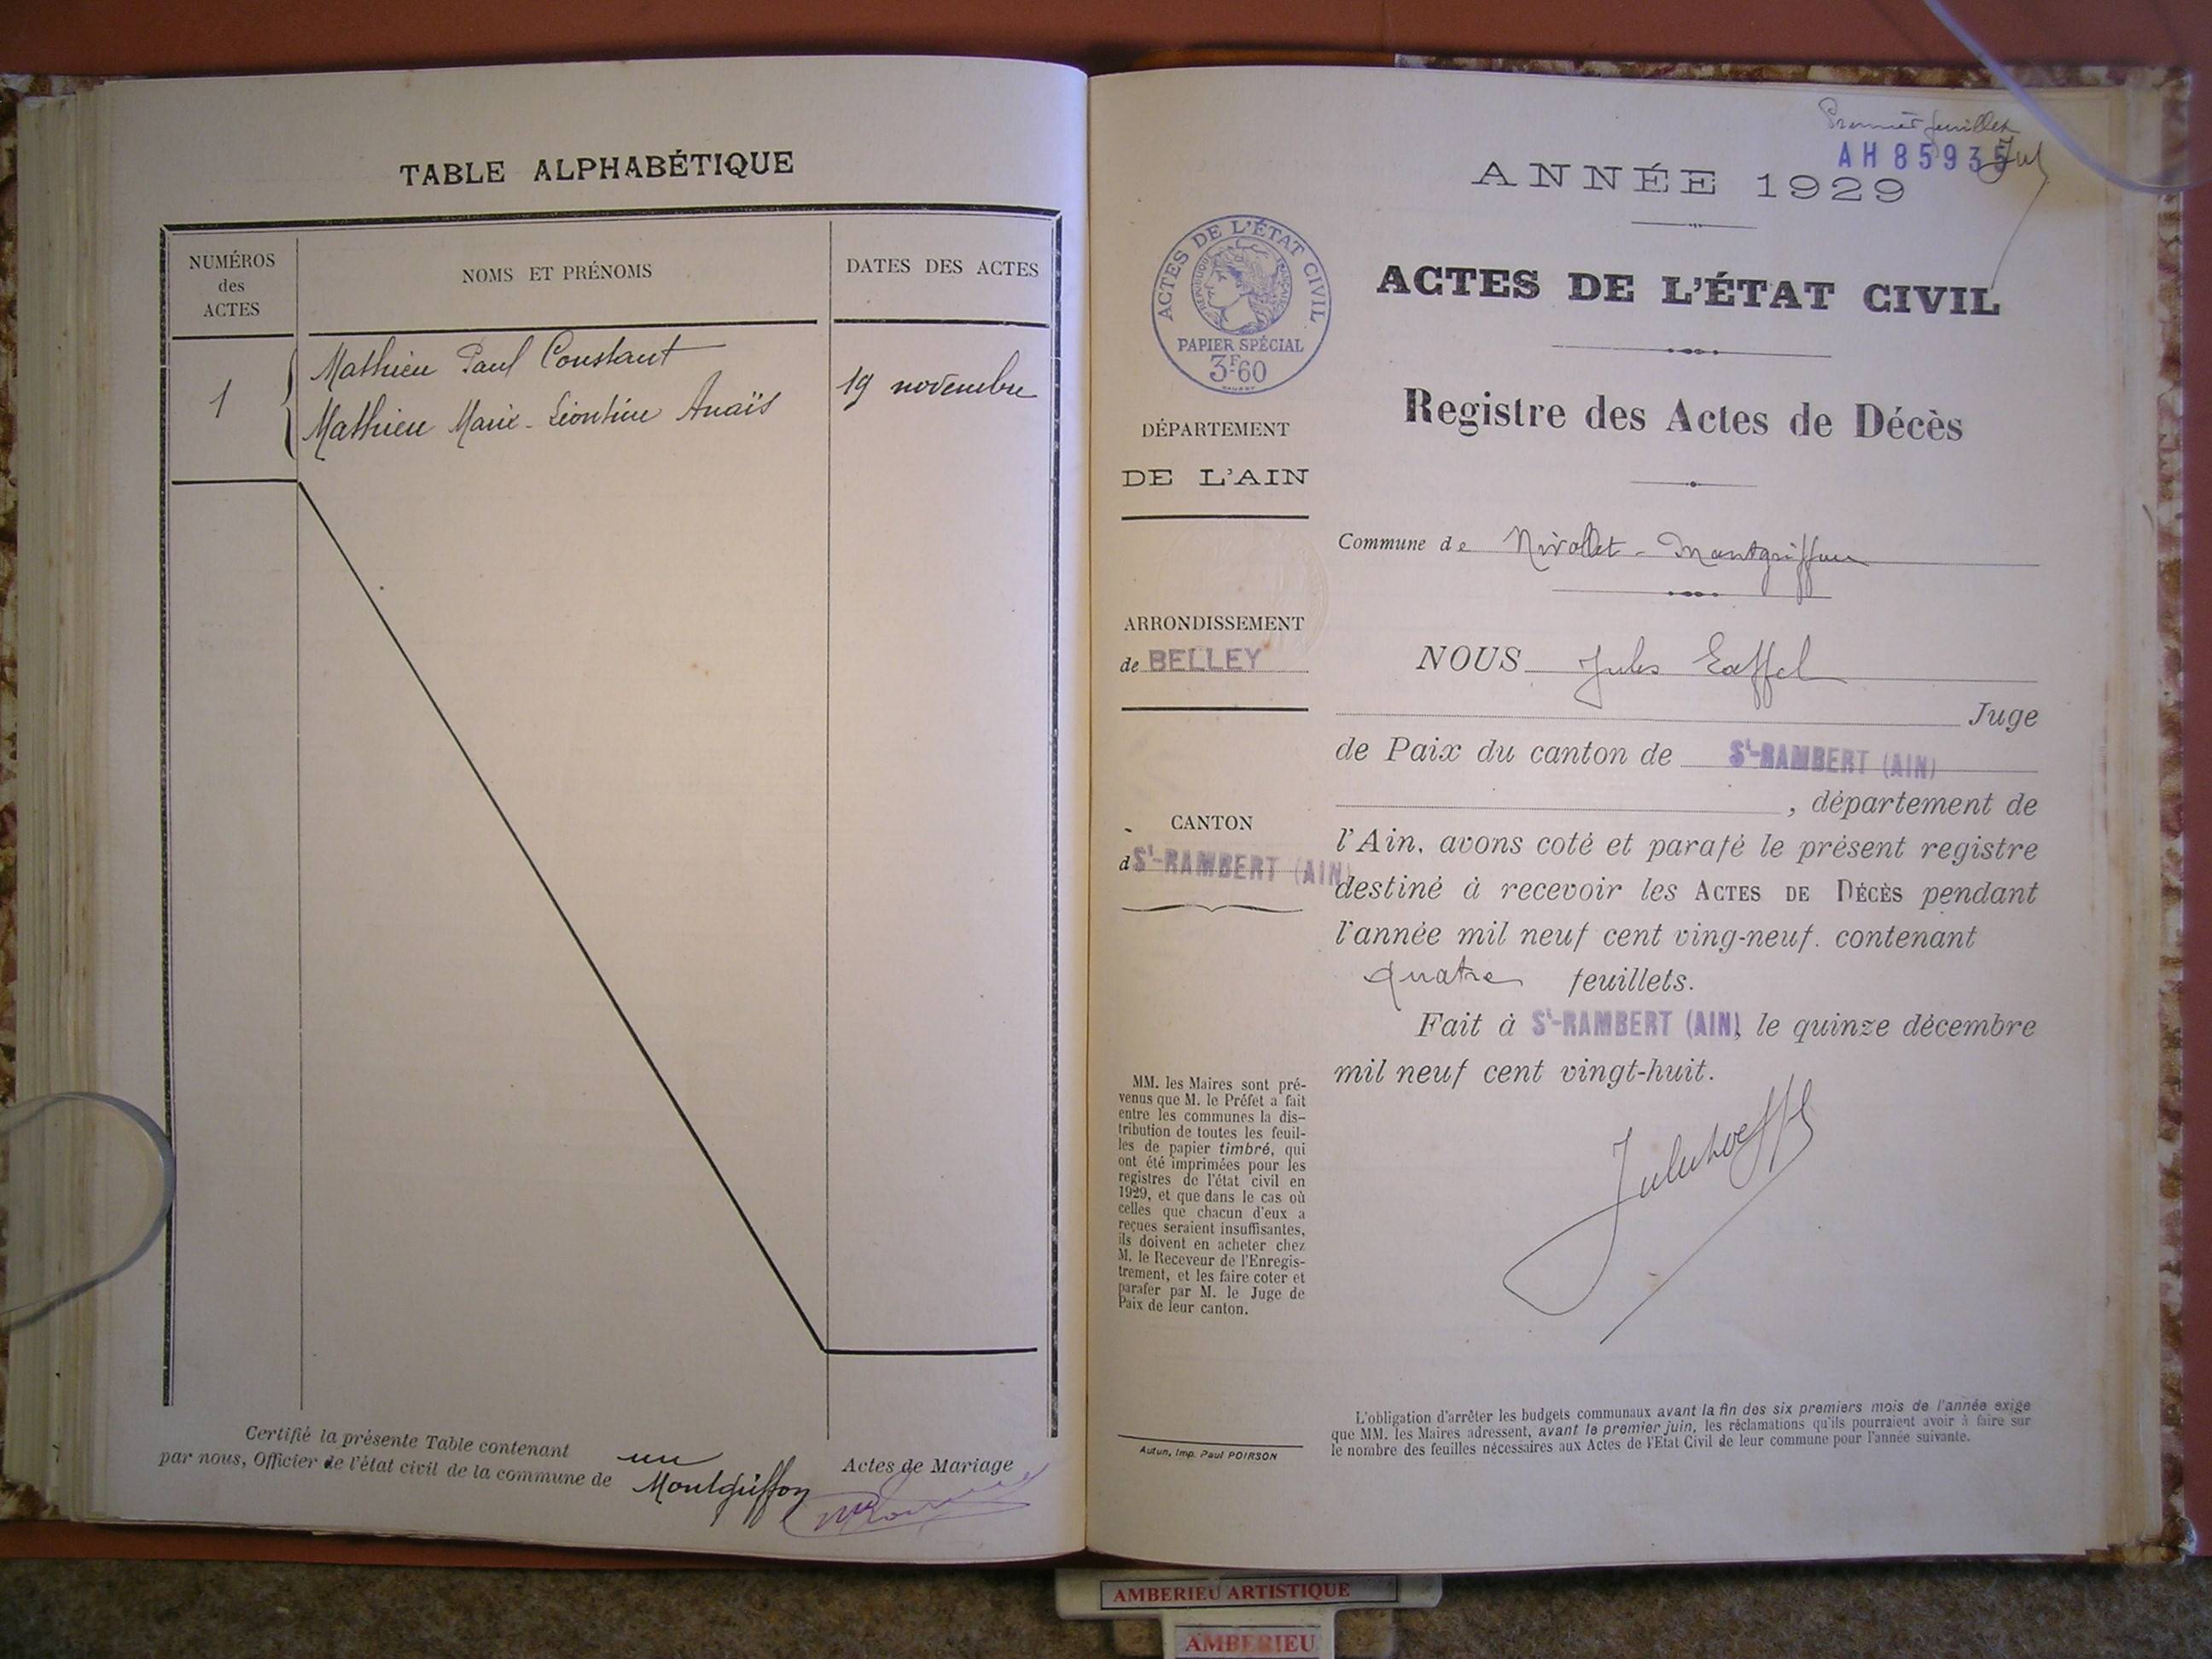 TABLE ALPHABÉTIQUE
NUMÉROS
des
ACTES
NOMS ET PRÉNOMS
DATES DES ACTES
1
Mathieu Paul Constant
Mathieu Marie-Léontine Anaïs
19 novembre
Certifié la présente Table contenant un Actes de Mariage
par nous, Officier de l'état civil de la commune de Montgriffon
Premier feuillet
AH 85935
ANNÉE 1929
ACTES DE L'ÉTAT CIVIL
RÉPUBLIQUE FRANÇAISE
PAPIER SPÉCIAL
3F.60
ACTES DE L'ÉTAT CIVIL
Registre des Actes de Décès
DÉPARTEMENT
DE L'AIN
ARRONDISSEMENT
de BELLEY
CANTON
d St-RAMBERT (AIN)
MM. les Maires sont pré-
venus que M. le Préfet a fait
entre les communes la dis-
tribution de toutes les feuil-
les de papier timbré, qui
ont été imprimées pour les
registres de l'état civil en
1929, et que dans le cas où
celles que chacun d'eux a
reçues seraient insuffisantes,
ils doivent en acheter chez
M. le Receveur de l'Enregis-
trement, et les faire coter et
parafer par M. le Juge de
Paix de leur canton.
Autun, Imp. Paul POIRSON
Commune de Nivollet-Montgriffon
NOUS Jules
Juge
de Paix du canton de St-RAMBERT (AIN)
, département de
l'Ain, avons coté et parafé le présent registre
destiné à recevoir les ACTES DE DÉCÈS pendant
l'année mil neuf cent ving-neuf. contenant
quatre feuillets.
Fait à St-RAMBERT (AIN), le quinze décembre
mil neuf cent vingt-huit.
L'obligation d'arrêter les budgets communaux avant la fin des six premiers mois de l'année exige
que MM. les Maires adressent, avant le premier juin, les réclamations qu'ils pourraient avoir à faire sur
le nombre des feuilles nécessaires aux Actes de l'Etat Civil de leur commune pour l'année suivante.
AMBERIEU ARTISTIQUE
AMBERIEU